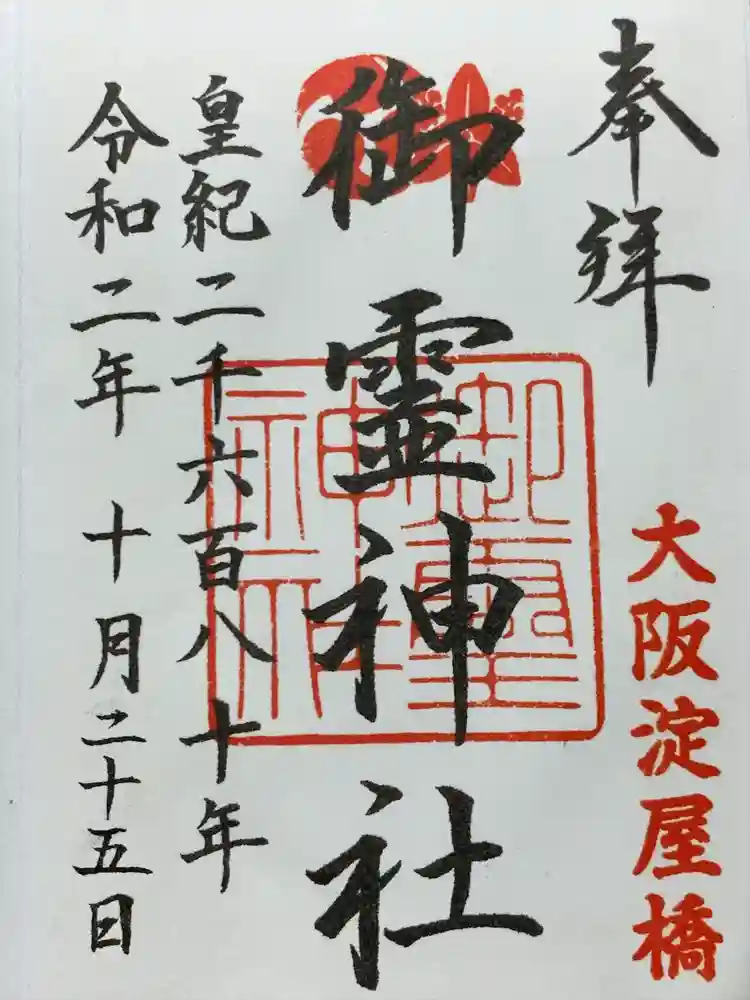 奉拝
大阪淀屋橋
御霊神社
御霊神社
皇紀二千六百八十年
令和二年 十月二十五日